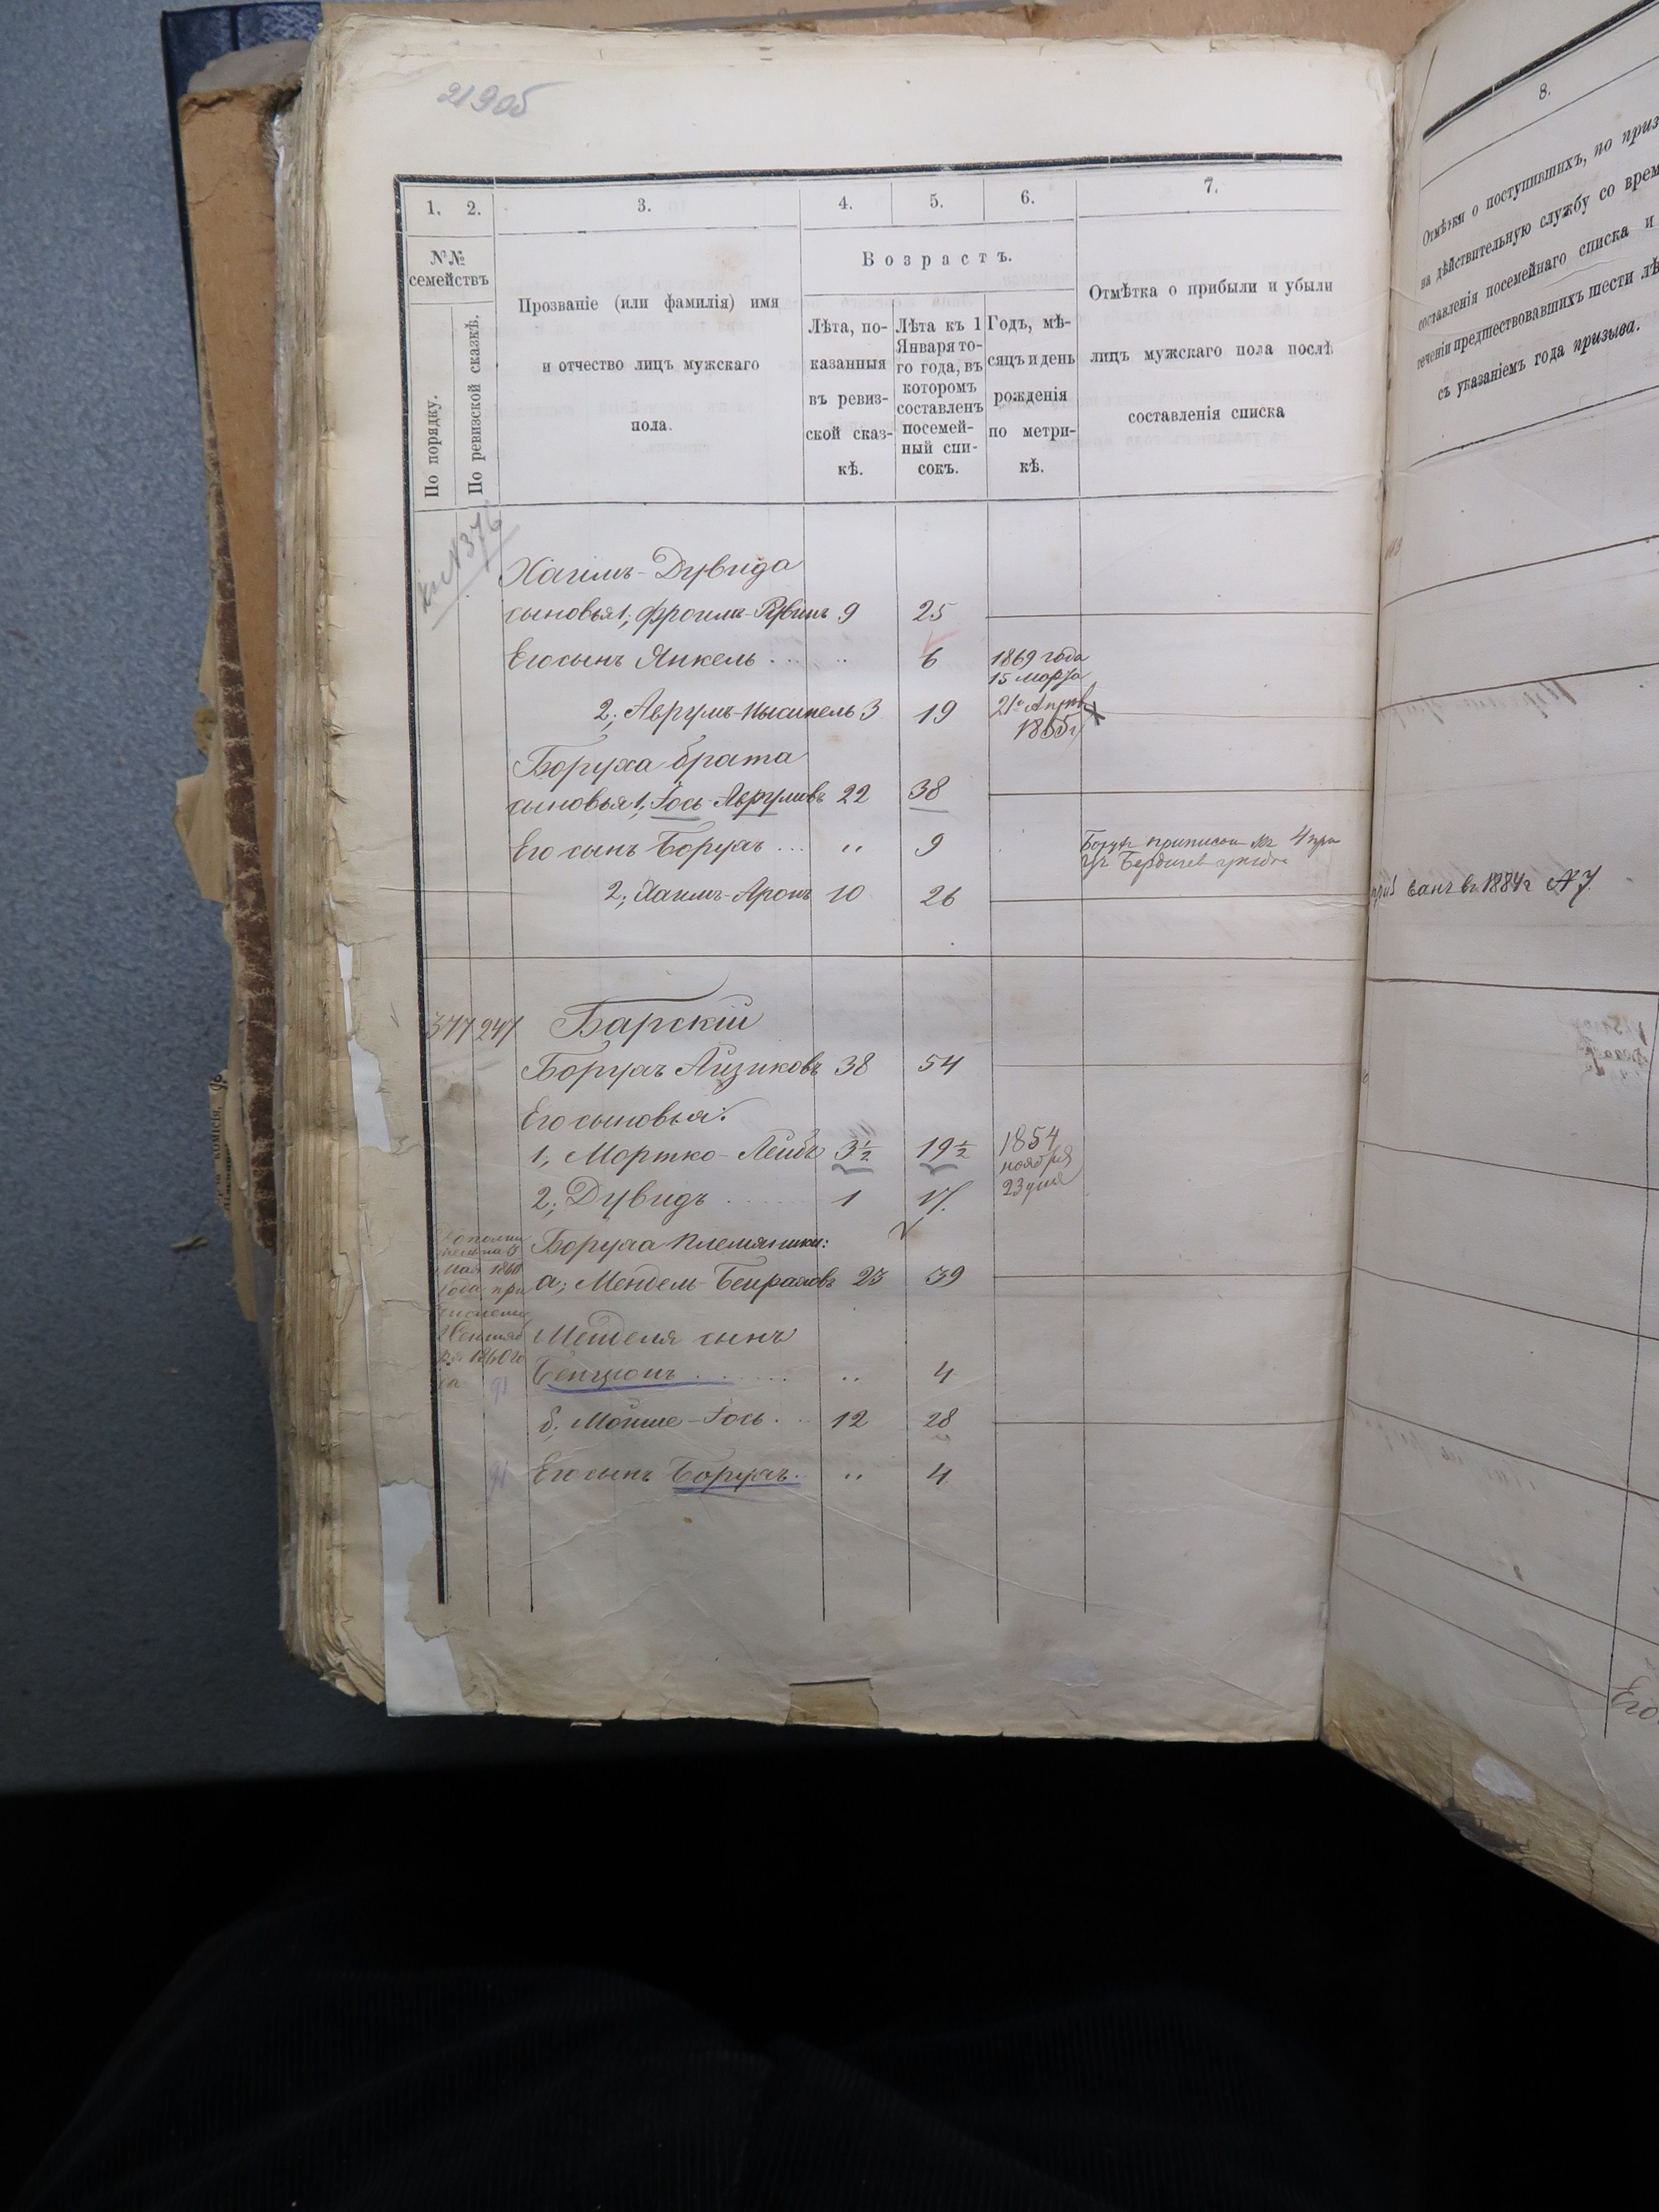 219об
1. 2. 3. 4. 5. 6. 7.
№№
семействъ
По порядку.
По ревизской сказкѣ.
Прозваніе (или фамилія) имя
и отчество лицъ мужскаго
пола.
Возрастъ.
Лѣта, по-
казанныя
въ ревиз-
ской сказ-
кѣ.
Лѣта къ 1
Января то-
го года, въ
которомъ
составленъ
посемей-
ный спи-
сокъ.
Годъ, мѣ-
сяцъ и день
рожденія
по метри-
кѣ.
Отмѣтка о прибыли и убыли
лицъ мужскаго пола послѣ
составленія списка
къ №376
Хаимъ-Дувида
сыновья 1; Фроимъ-Рувинъ 9 25
Его сынъ Янкель . . . „ 6 1869 года
15 марта
2; Аврумъ- 3 19 21го Апрѣ
1855г
Боруха брата
сыновья 1; Іось Аврумовъ 22 38
Его сынъ Борухъ . . . „ 9 Борухъ приписан къ 4 при
уч Бердичев уѣзда
2; Хаимъ-Аронъ 10 26
377 247 Барскій
Борухъ Айзиковъ 38 54
Его сыновья:
1, Мортко-Лейбъ 3½ 19½ 1854
ноября
23 дня
2; Дувидъ 1 17.
Боруха племянники:
а; Мендель- 23 39
Менделя сынъ
Бенціонъ . . . „ 4
б; Мойше-Іось . . 12 28
Его сынъ Борухъ. „ 4
мая 1860
года при
1860го
91
91
8.
Отмѣтки о поступившихъ, по приз
на дѣйствительную службу со врем
составленія посемейнаго списка и
теченіи предшествовавшихъ шести лѣ
съ указаніемъ года призыва.
въ 1884г №7.
Его